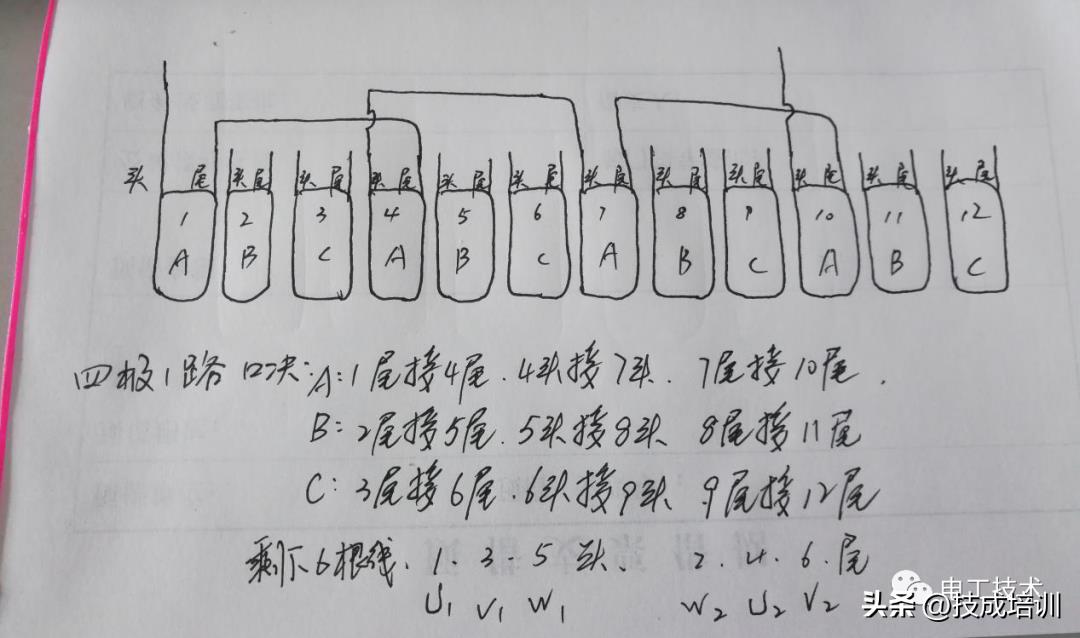 头 尾 头 尾 头 尾 头 尾 头 尾 头 尾 头 尾 头 尾 头 尾 头 尾 头 尾 头 尾
1 2 3 4 5 6 7 8 9 10 11 12
A B C A B C A B C A B C
四极1路口决:A:1尾接4尾.4头接7头.7尾接10尾.
B:2尾接5尾.5头接8头 8尾接11尾
C:3尾接6尾.6头接9头.9尾接12尾
剩下6根线.1.3-5头.2.4.6.尾
U1 V1 W1 W2 U2 V2
电工技术
头条@技成培训